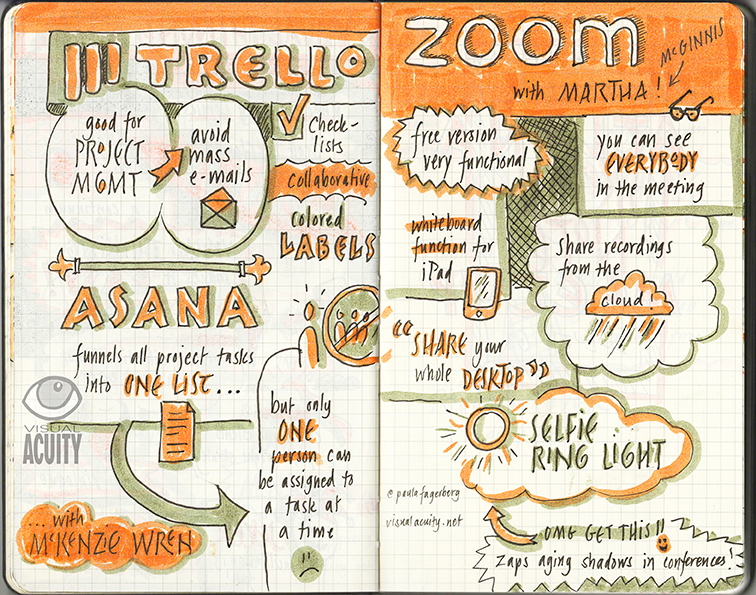 TRELLO
good for
PROJECT
MGMT
avoid
mass
e-mails
Check-
lists
collaborative
colored
LABELS
ASANA
funnels all project tasks
into ONE LIST...
but only
ONE
person can
be assigned to
a task at
a time
VISUAL
ACUITY
... with
MCKENZIE WREN
ZOOM
with MARTHA!
MCGINNIS
free version
very functional
you can see
EVERYBODY
in the meeting
whiteboard
function for
iPad
Share recordings
from the
cloud!
"SHARE your
whole DESKTOP"
SELFIE
RING LIGHT
@paulafagerberg
visualacuity.net
OMG GET THIS!!
Zaps aging shadows in conferences!